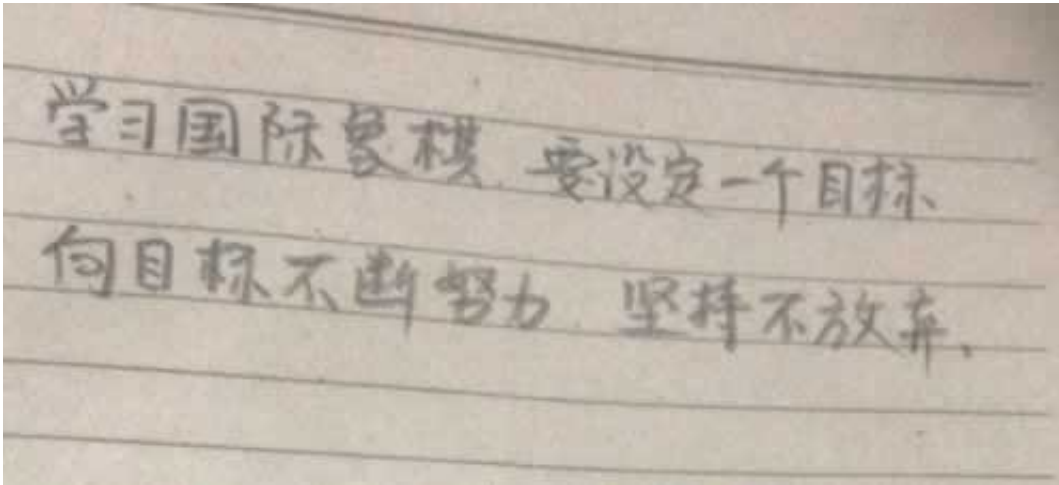 学习国际象棋,要设定一个目标、
向目标不断努力,坚持不放弃、